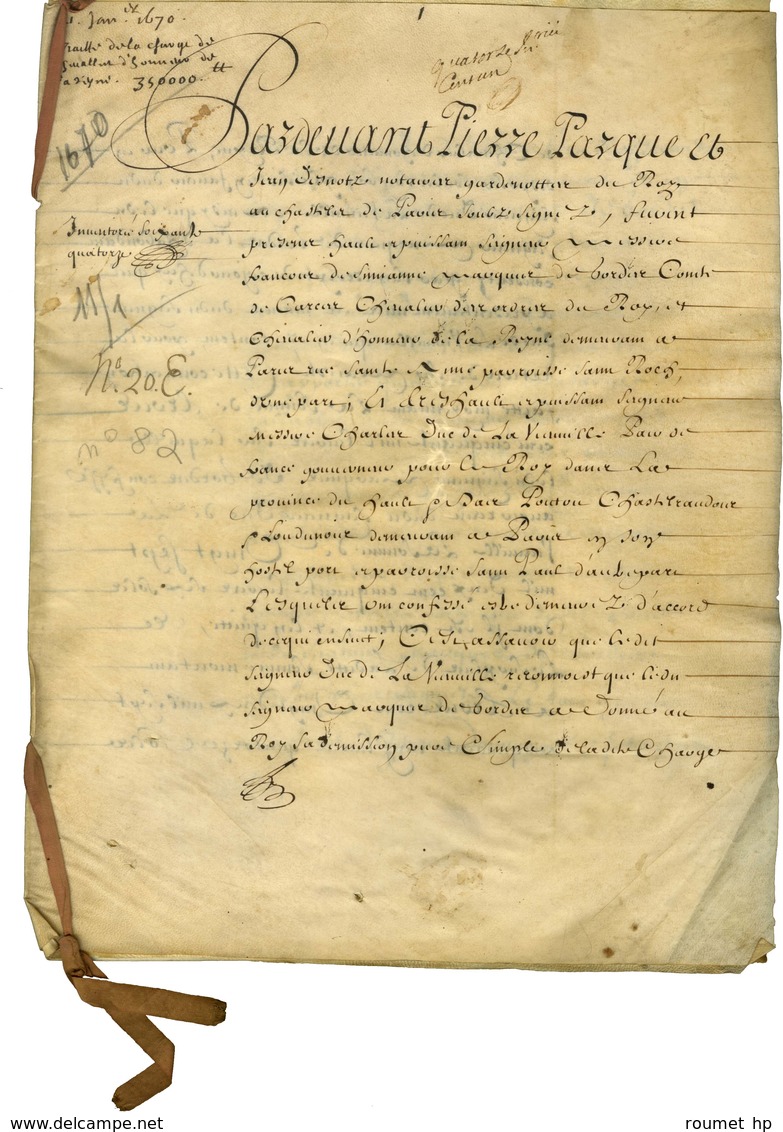 Janer 1670
traitté de la charge de
d'honneur de
la reyne. 350000.tt
1670
Pardevant Pierre Parque et
Jean Desnotz notaires gardenottes du Roy
au chastelet de Paris soubz signez, furent
Inventorié soixante
quatorze
presens hault et puissant Seigneur Messire
Francois de Simianne Marquis de Gordes Comte
11/1
de Carces Chevalier des ordres du Roy, et
Chevalier d'honneur de la Reyne demeurant a
No. 20. E.
Paris rue Sainte Anne parroisse Saint Roch,
d'une part; Et tres hault et puissant Seigneur
no 82
Messire Charles Duc de La Vieuville Pair de
France gouverneur pour le Roy dans La
province du hault et bas Poictou Chastelraudois
et Loudunois demeurant a Paris en son
hostel parroisse Saint Paul d'autre part
Lesquelz ont confessé estre demeurez d'accord
de ce qui ensuict; C'est assavoir que ledit
Seigneur Duc de La Vieuville reconnoist que ledit
Seigneur Marquis de Gordes a Donné au
Roy sa demission pure et Simple de ladite Charge
roumet hp